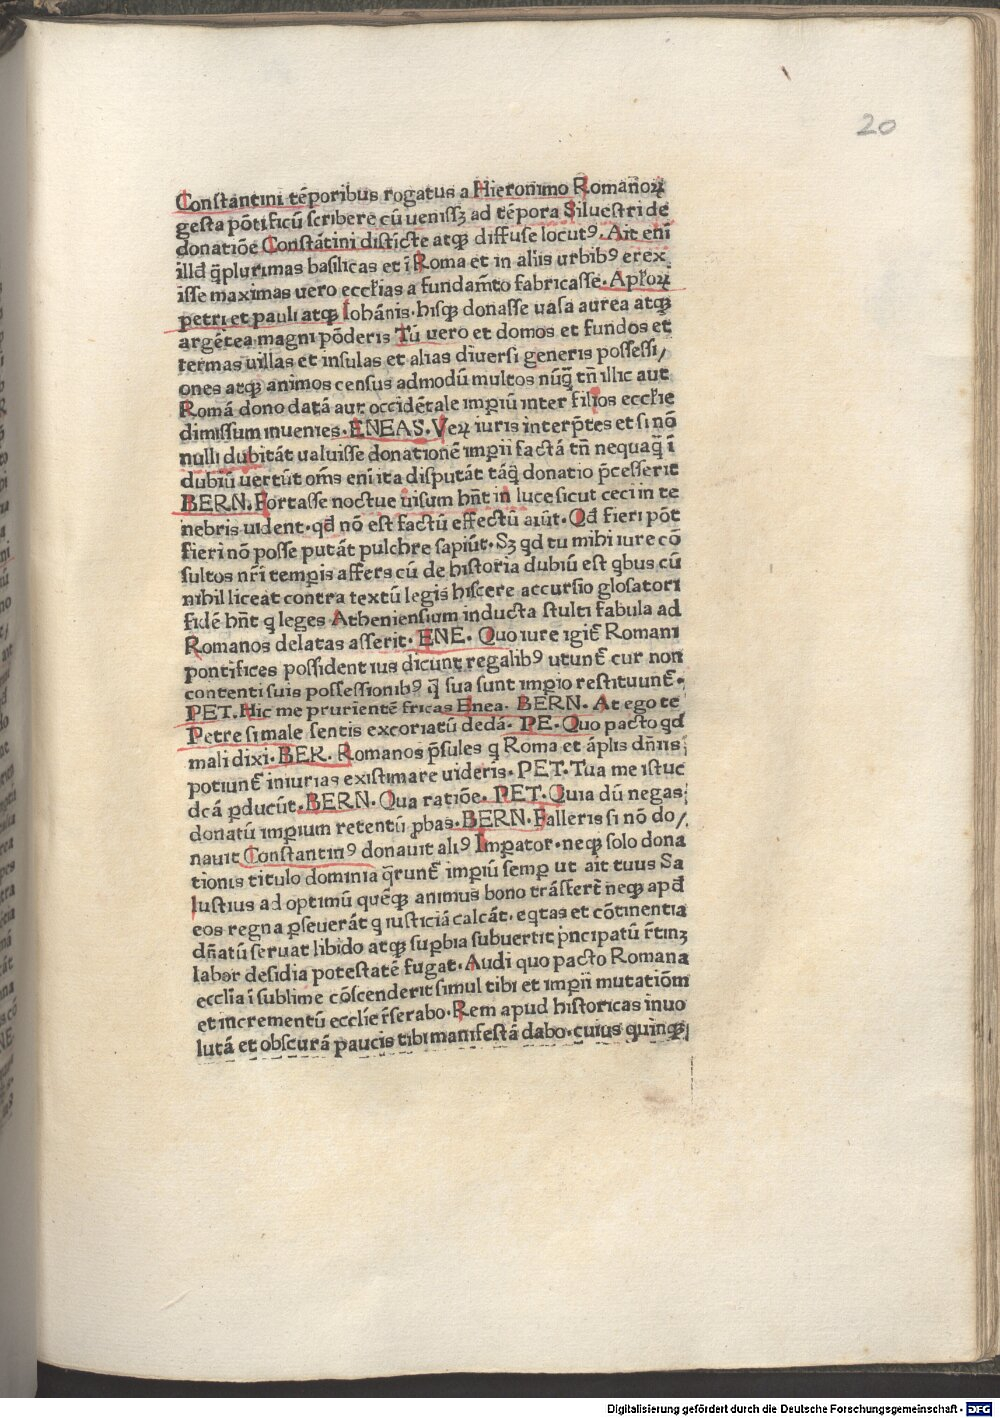 20
Constantini tēporibus rogatus a Hieronimo Romanoꝝ
gesta pōtificū scribere cū uenissꝫ ad tēpora Siluestri de
donatiōe Constātini distīcte atqꝫ diffuse locutꝰ. Ait eni
illđ q̄plurimas basilicas et ī Roma et in aliis urbibꝰ erex
isse maximas uero eccłias a fundamīto fabricasse. Apłoꝝ
petri et pauli atqꝫ Iohānis. hisqꝫ donasse uasa aurea atqꝫ
argētea magni pōderis Tū uero et domos et fundos et
termas uillas et insulas et alias diuersi generis possessi/
ones atqꝫ animos census admodū multos nūq̄ tn̄ illic aut
Romā dono datā aut occidētale imꝑiū inter filios eccłie
dimissum inuenies. ENEAS. Veꝝ iuris interp̄tes et si nō
nulli dubitāt ualuisse donationē imꝑii factā tn̄ nequaq̄ ī
dubiū uertūt om̄s eni ita disputāt tāq̄ donatio p̄cesserit
BERN. Fortasse noctue uisum hn̄t in luce sicut ceci in te
nebris uident. qđ nō est factū effectū aiūt. Qđ fieri pōt
fieri nō posse putāt pulchre sapiūt. Sꝫ qđ tu mihi iure cō
sultos nr̄i temꝑis affers cū de historia dubiū est qbus cū
nihil liceat contra textū legis hiscere accursio glosatori
fidē hn̄t q leges Atheniensium inducta stulti fabula ad
Romanos delatas asserit. ENE. Quo iure igiť Romani
pontifices possident ius dicunt regalibꝰ utunť cur non
contenti suis possessionibꝰ q̄ sua sunt imꝑio restituunť.
PET. Hic me prurientē fricas Enea. BERN. At ego te
Petre si male sentis excoriatū dedā. PE. Quo pacto qđ
mali dixi. BER. Romanos p̄sules q Roma et āplis dn̄iis
potiunť iniurias existimare uideris. PET. Tua me istuc
dc̄a ꝑducūt. BERN. Qua ratiōe. PET. Quia dū negas
donatū imꝑium retentū ꝓbas. BERN. Falleris si nō do/
nauit Constantinꝰ donauit aliꝰ Imꝑator. neqꝫ solo dona
tionis titulo dominia q̄runť imꝑiū semꝑ ut ait tuus Sa
lustius ad optimū quēqꝫ animus bono trāsferť neqꝫ apđ
eos regna ꝑseuerāt q iusticiā calcāt. eqtas et cōtinentia
dn̄atū seruat libido atqꝫ suꝑbia subuertit pͥncipatū r̄tinꝫ
labor desidia potestatē fugat. Audi quo pacto Romana
eccłia ī sublime cōscenderit simul tibi et imꝑii mutatiōm
et incrementū eccłie r̄serabo. Rem apud historicas inuo
lutā et obscurā paucis tibi manifestā dabo. cuius quinqꝫ
Digitalisierung gefördert durch die Deutsche Forschungsgemeinschaft - DFG